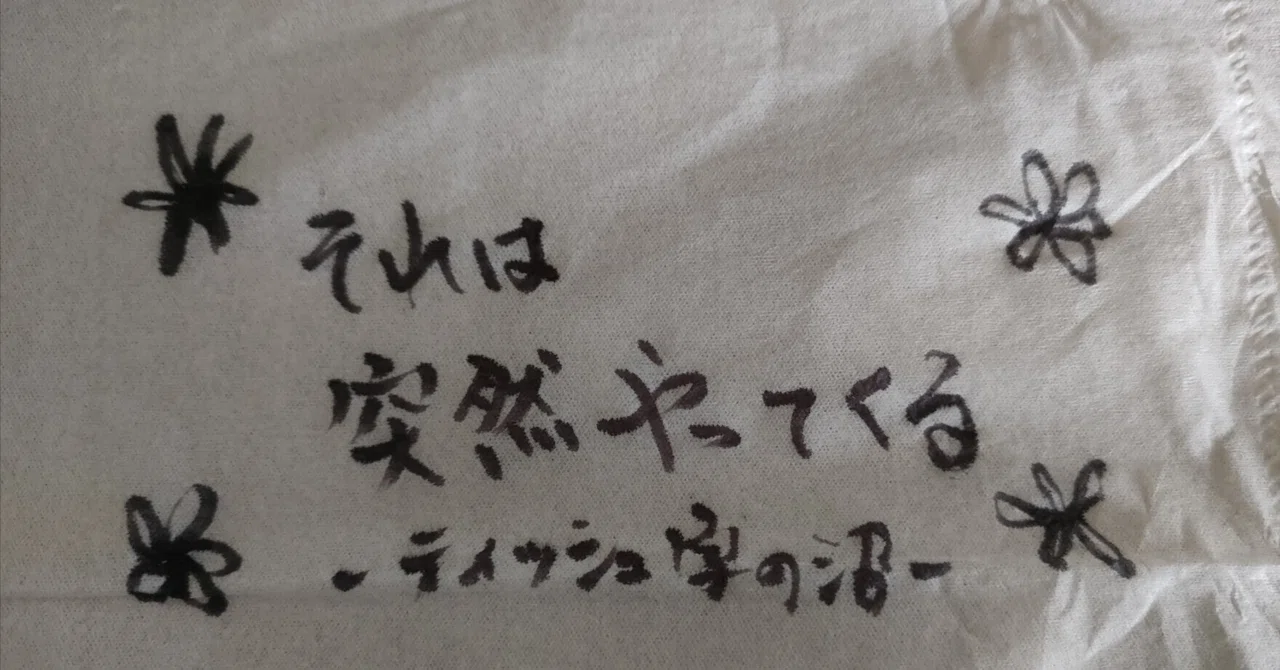 それは
突然やってくる
-ティッシュ字の沼-